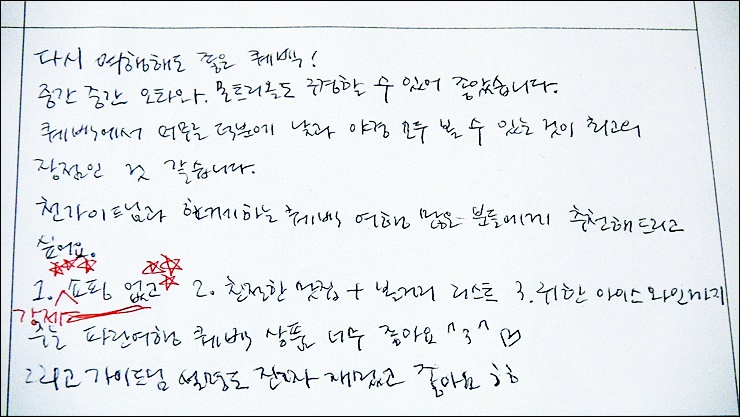 다시 여행해도 좋은 퀘벡!
중간 중간 오타와, 몬트리올도 구경할 수 있어 좋았습니다.
퀘벡에서 머무는 덕분에 낮과 야경 모두 볼 수 있는 것이 최고의
장점인 것 같습니다.
천가이드님과 함께하는 퀘벡 여행 많은 분들에게 추천해드리고
싶어요.
1. 쇼핑 없고 2. 친절한 맛집 + 볼거리 리스트 3. 귀한 아이스와인까지
강제
주는 파란여행 퀘벡 상품 너무 좋아요 ^3^ ♡
그리고 가이드님 설명도 진짜 재밌고 좋아요 ㅎㅎ